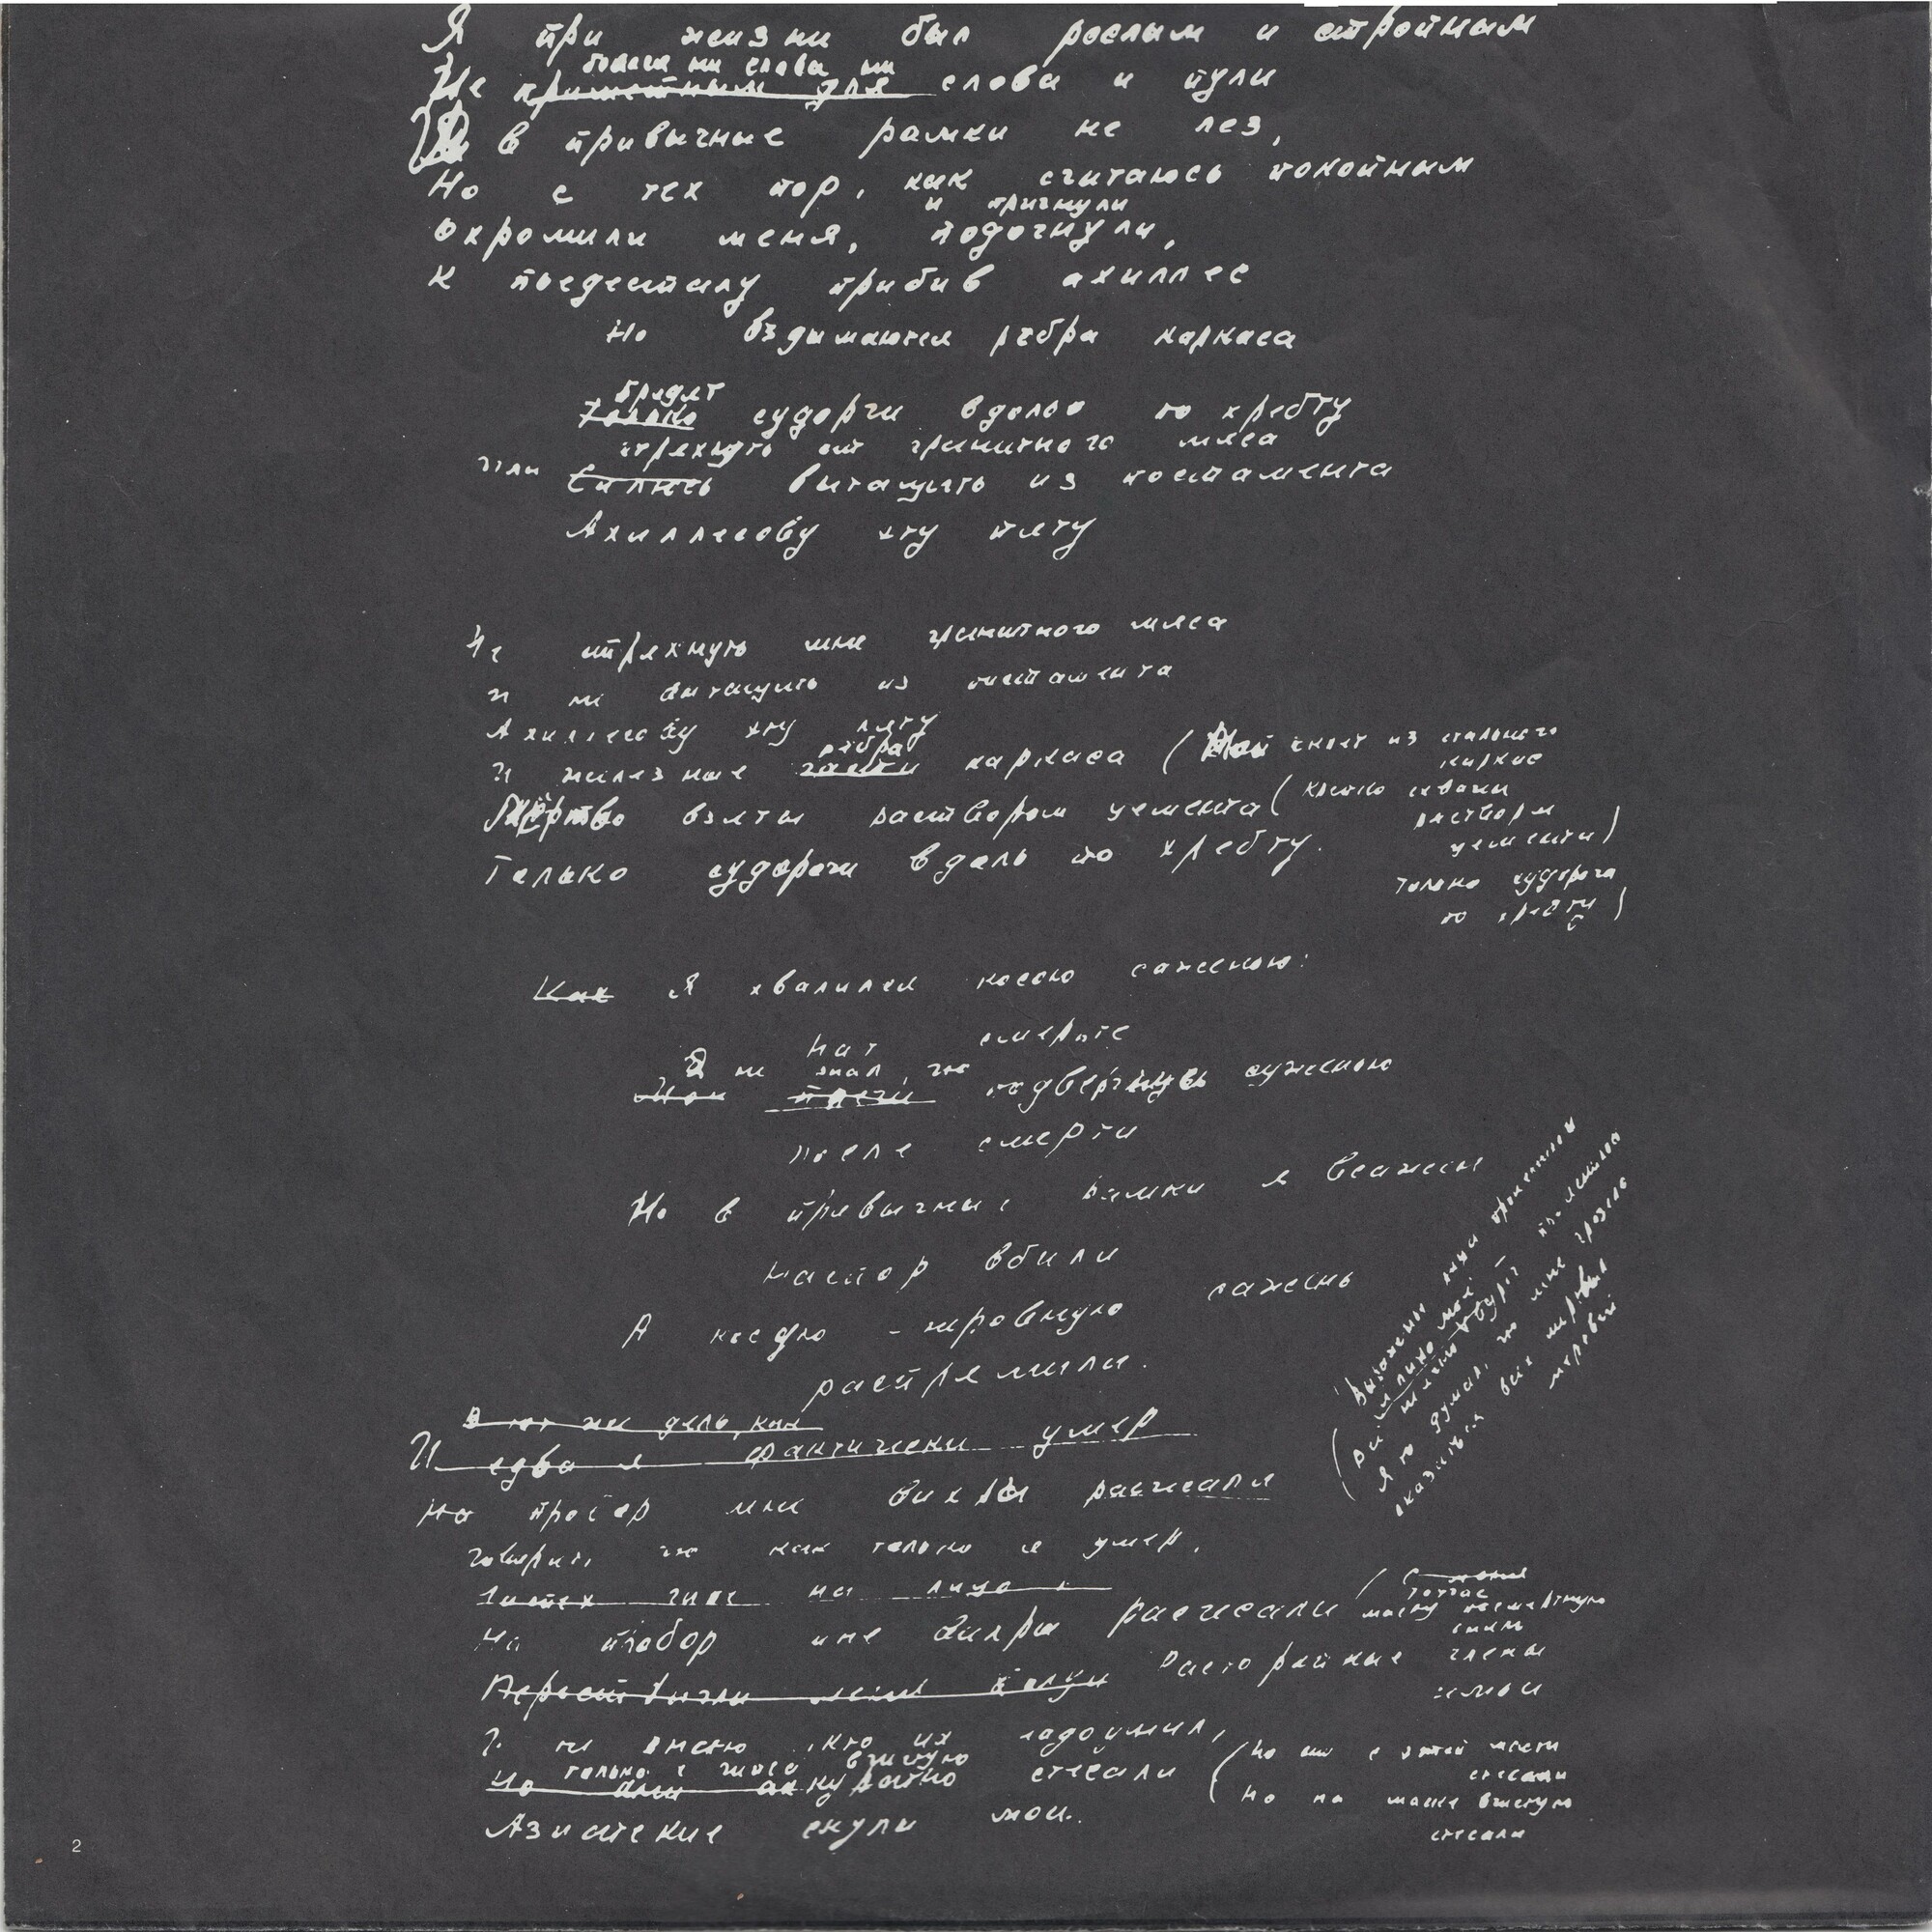 Я при жизни был рослым и стройным
боялся ни слова ни
Не приметным для слова и пули
И в привычные рамки не лез,
Но с тех пор, как считаюсь покойным
и пригнули
Охромили меня, подогнули,
К пьедесталу прибив ахиллес
Но вздымаются рёбра каркаса
Бредят
Только судорги вдоль по хребту
стряхнуть от гранитного мяса
или Силюсь вытащить из постамента
Ахиллесову эту пяту
Не стряхнуть мне гранитного мяса
и не вытащить из постамента
Ахиллесову эту пяту
рёбра
И железные части каркаса ( Мой скелет из стального
каркас
Мёртво взяты раствором цемента ( крепко схвачен
раствором
цемента )
Только судороги вдаль по хребту.
только судорога
по хребту )
Как Я хвалился косою саженью:
Нат смерьте
Я не знал, что
подвергнусь суженью
после смерти
Но в привычные рамки я всажен
На спор вбили
А косую - неровную сажень
распрямили.
В тот же день, как
И едва я фактически умер
На пробор мне вихры расчесали
говорит, что как только я умер,
на лицо
На пробор мне вихры расчесали
тотчас
маску посмертную
сняли
Расторопные члены
семьи
И не знаю, кто их надоумил,
только с гипса вчистую
Но аккуратно стесали ( Но они с этой маски
стесали
Но на маске вчистую
стесали
Азиатские скулы мои.
Я не думал, что мне грозело
оказаться всех мертвых
мертвей
2